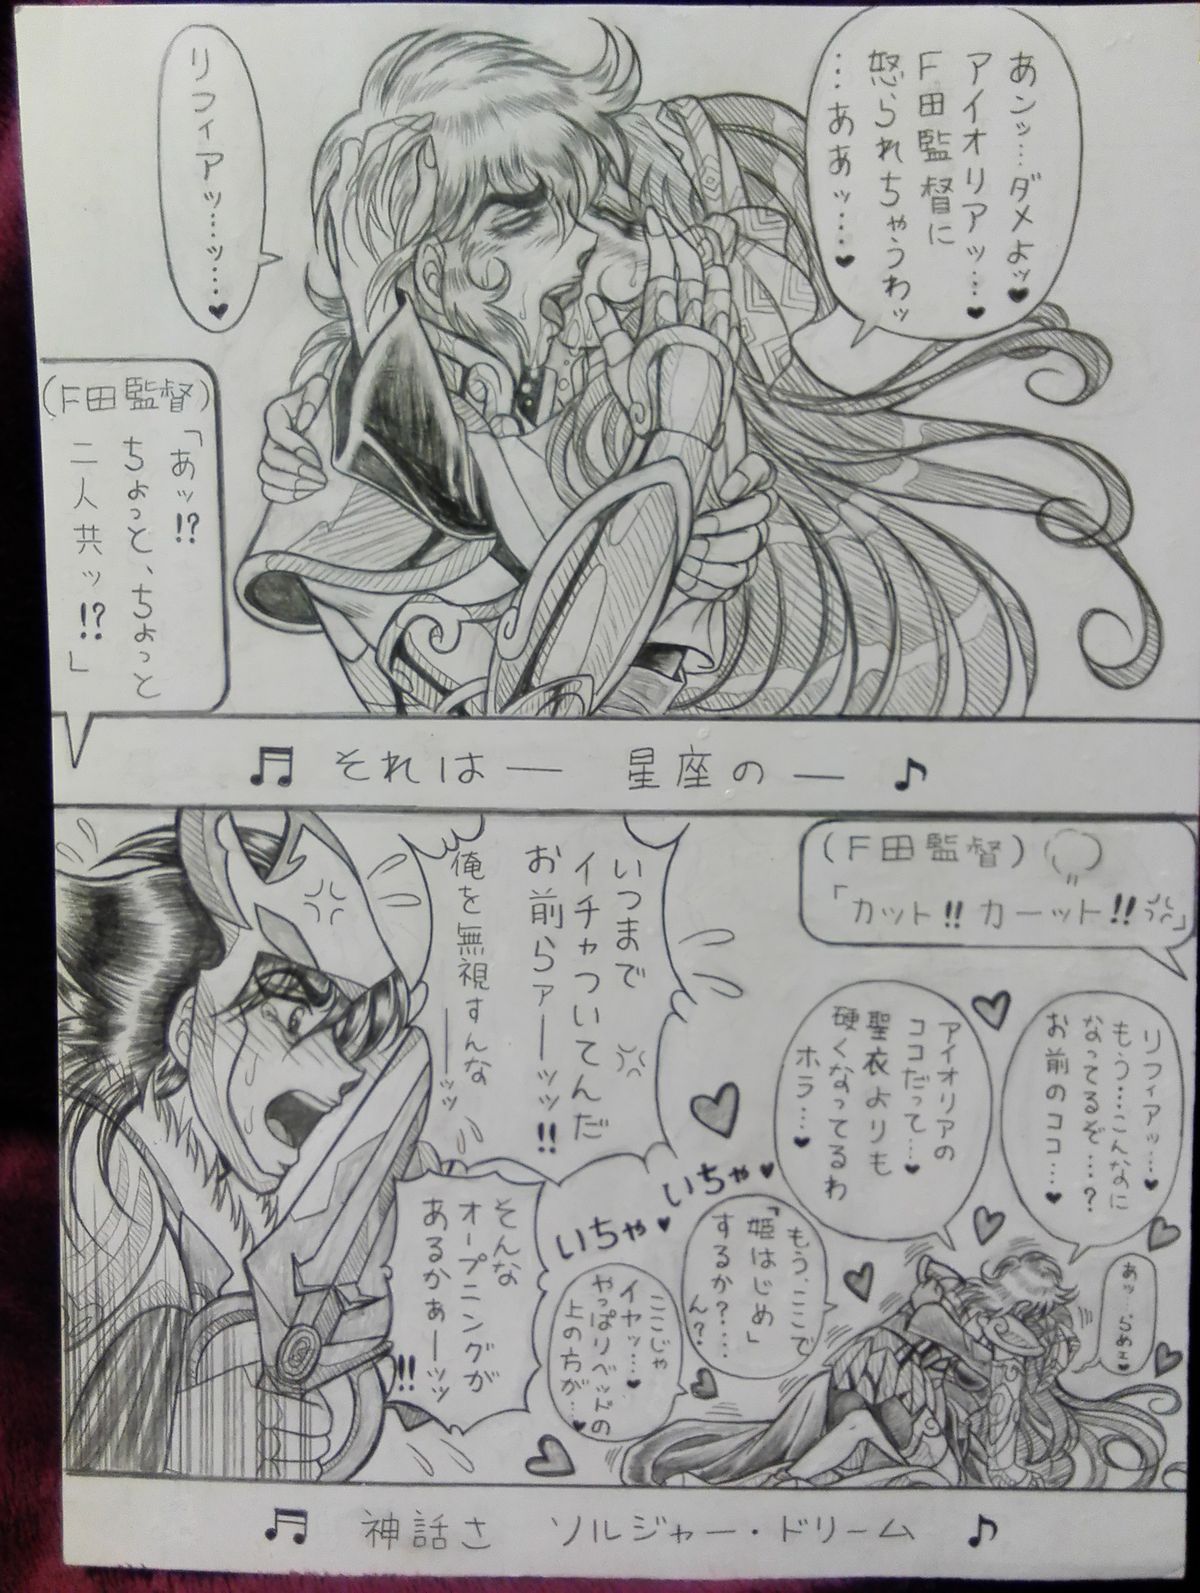 あンッ…ダメよッ♥
アイオリアッ…♥
F田監督に
怒られちゃうわッ
…ああッ…♥
リフィアッ…ッ…♥
(F田監督)
「あッ!?
ちょっと、ちょっと
二人共ッ!?」
♫ それは― 星座の― ♪
(F田監督)
「カット!!カーット!!」
リフィアッ…♥
もう…こんなに
なってるぞ…?
お前のココ…♥
アイオリアの
ココだって…♥
聖衣よりも
硬くなってるわ
ホラ…♥
あッ…らめェ♥
いつまで
イチャついてんだ
お前らァーーッッ!!
俺を無視すんな
――ッッ
いちゃ♥
いちゃ♥
もう、ここで
「姫はじめ」
するか?…
ん?
ここじゃ
イヤッ…♥
やっぱりベッドの
上の方が…♥
そんな
オープニングが
あるかぁーッッ
!!
♫ 神話さ ソルジャー・ドリーム ♪